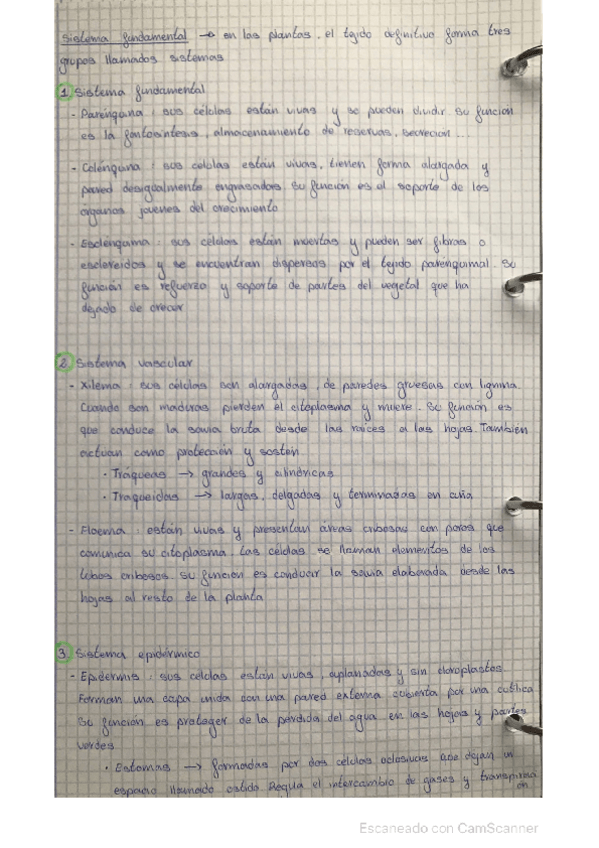 Sistema fundamental → en las plantas, el tejido definitivo forma tres
grupos llamados sistemas
1. Sistema fundamental
- Parénquima : sus células están vivas y se pueden dividir. Su función
es la fontosíntesis, almacenamiento de reservas, secreción ...
- Colénquima : sus células están vivas, tienen forma alargada y
pared desigualmente engrosadas. Su función es el soporte de los
órganos jóvenes del crecimiento
- Esclénquima : sus células están muertas y pueden ser fibras o
escleroidos y se encuentran dispersas por el tejido parenquimal. Su
función es refuerzo y soporte de partes del vegetal que ha
dejado de crecer
2. Sistema vascular
- Xilema : sus células son alargadas, de paredes gruesas con lignina.
Cuando son maduras pierden el citoplasma y muere. Su función es
que conduce la savia bruta desde las raíces a las hojas. También
actúan como protección y sostén
· Tráqueas → grandes y cilíndricas
· Traqueidas → largas, delgadas y terminadas en cuña
- Floema : están vivas y presentan áreas cribosas con poros que
comunica su citoplasma. Las células se llaman elementos de los
tubos cribosos. Su función es conducir la savia elaborada desde las
hojas al resto de la planta
3. Sistema epidérmico
- Epidermis : sus células están vivas, aplanadas y sin cloroplastos.
Forman una capa unida con una pared externa cubierta por una cutícula
Su función es proteger de la pérdida del agua en las hojas y partes
verdes
· Estomas → formadas por dos células oclusivas que dejan un
espacio llamado ostiolo. Regula el intercambio de gases y transpiración
Escaneado con CamScanner